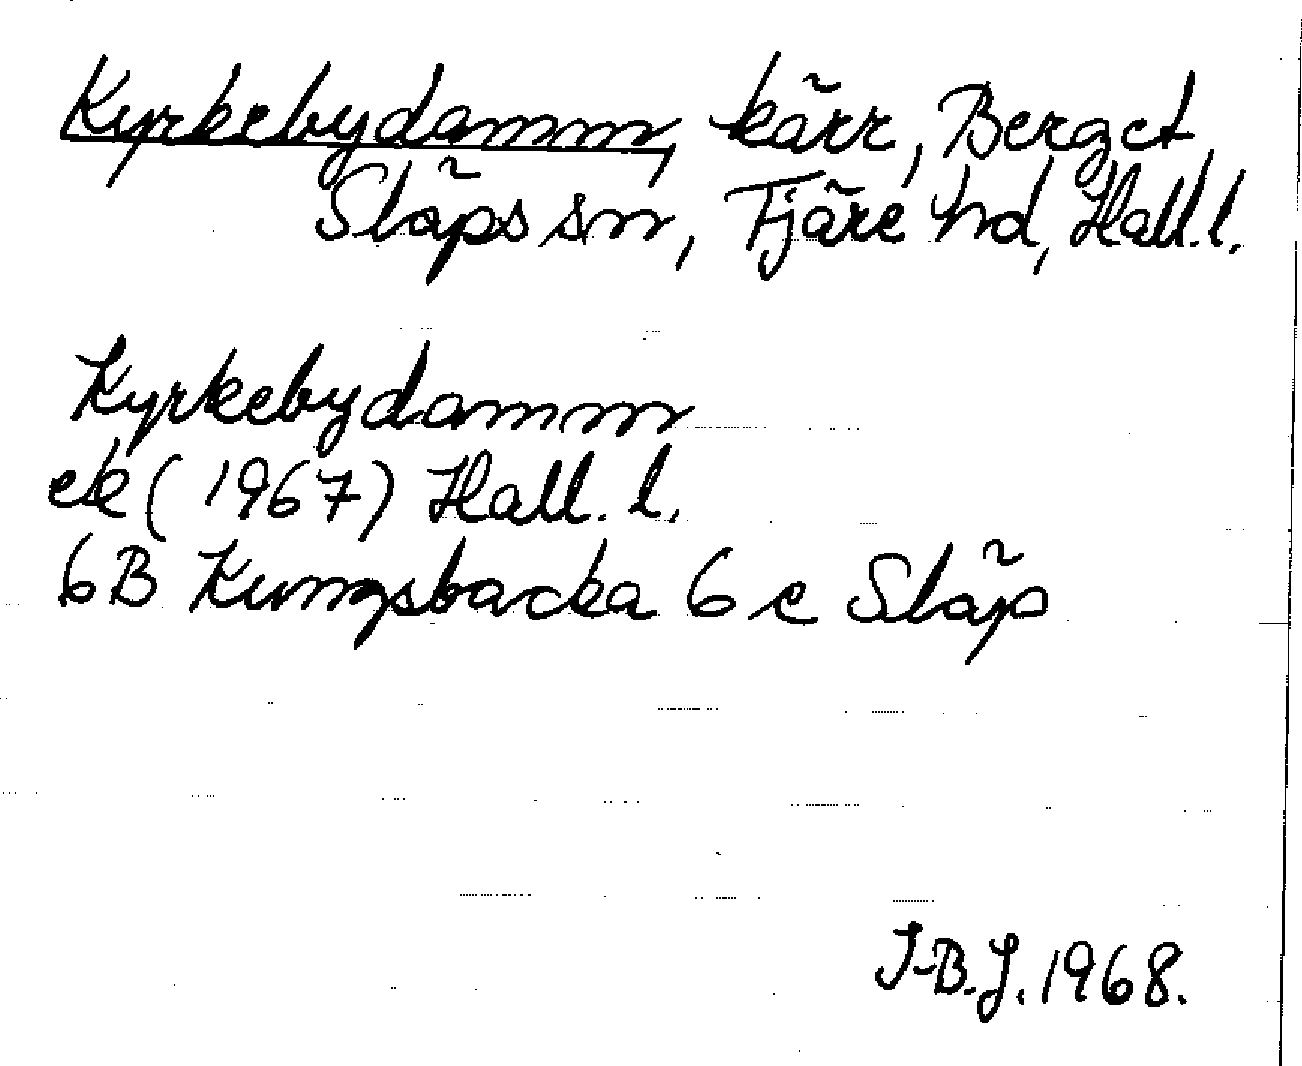 Kyrkebydamm, kärr, Berget
Släps sn, Fjäre hd, Hall. l.
Kyrkebydamm
ek (1967) Hall. l.
6B Kungsbacka 6 e Släp
I-B.J. 1968.